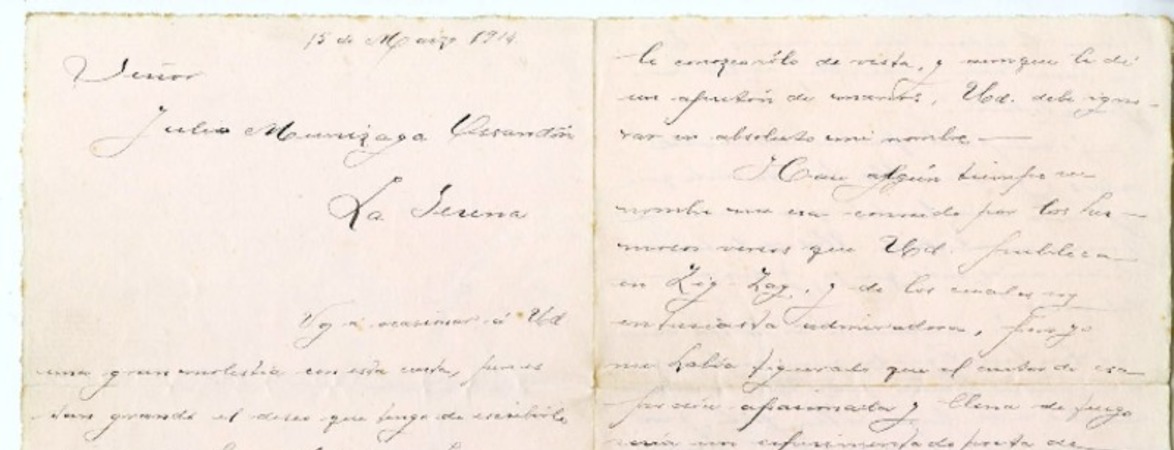 15 de Marzo 1914.
Señor
Julio Munizaga Ossandón
La Serena
Voy a ocasionar á Ud
una gran molestia con esta carta, pues es
tan grande el deseo que tengo de escribirle,
le conozco sólo de vista, y aunque le dí
un apretón de manos, Ud. debe igno-
rar en absoluto mi nombre—
Hace algún tiempo su
nombre me era conocido por los her-
mosos versos que Ud. publica
en Zig-Zag, y de los cuales soy
entusiasta admiradora, pero yo
me había figurado que el autor de esa
poesía apasionada y llena de fuego
sería un experimentado poeta de